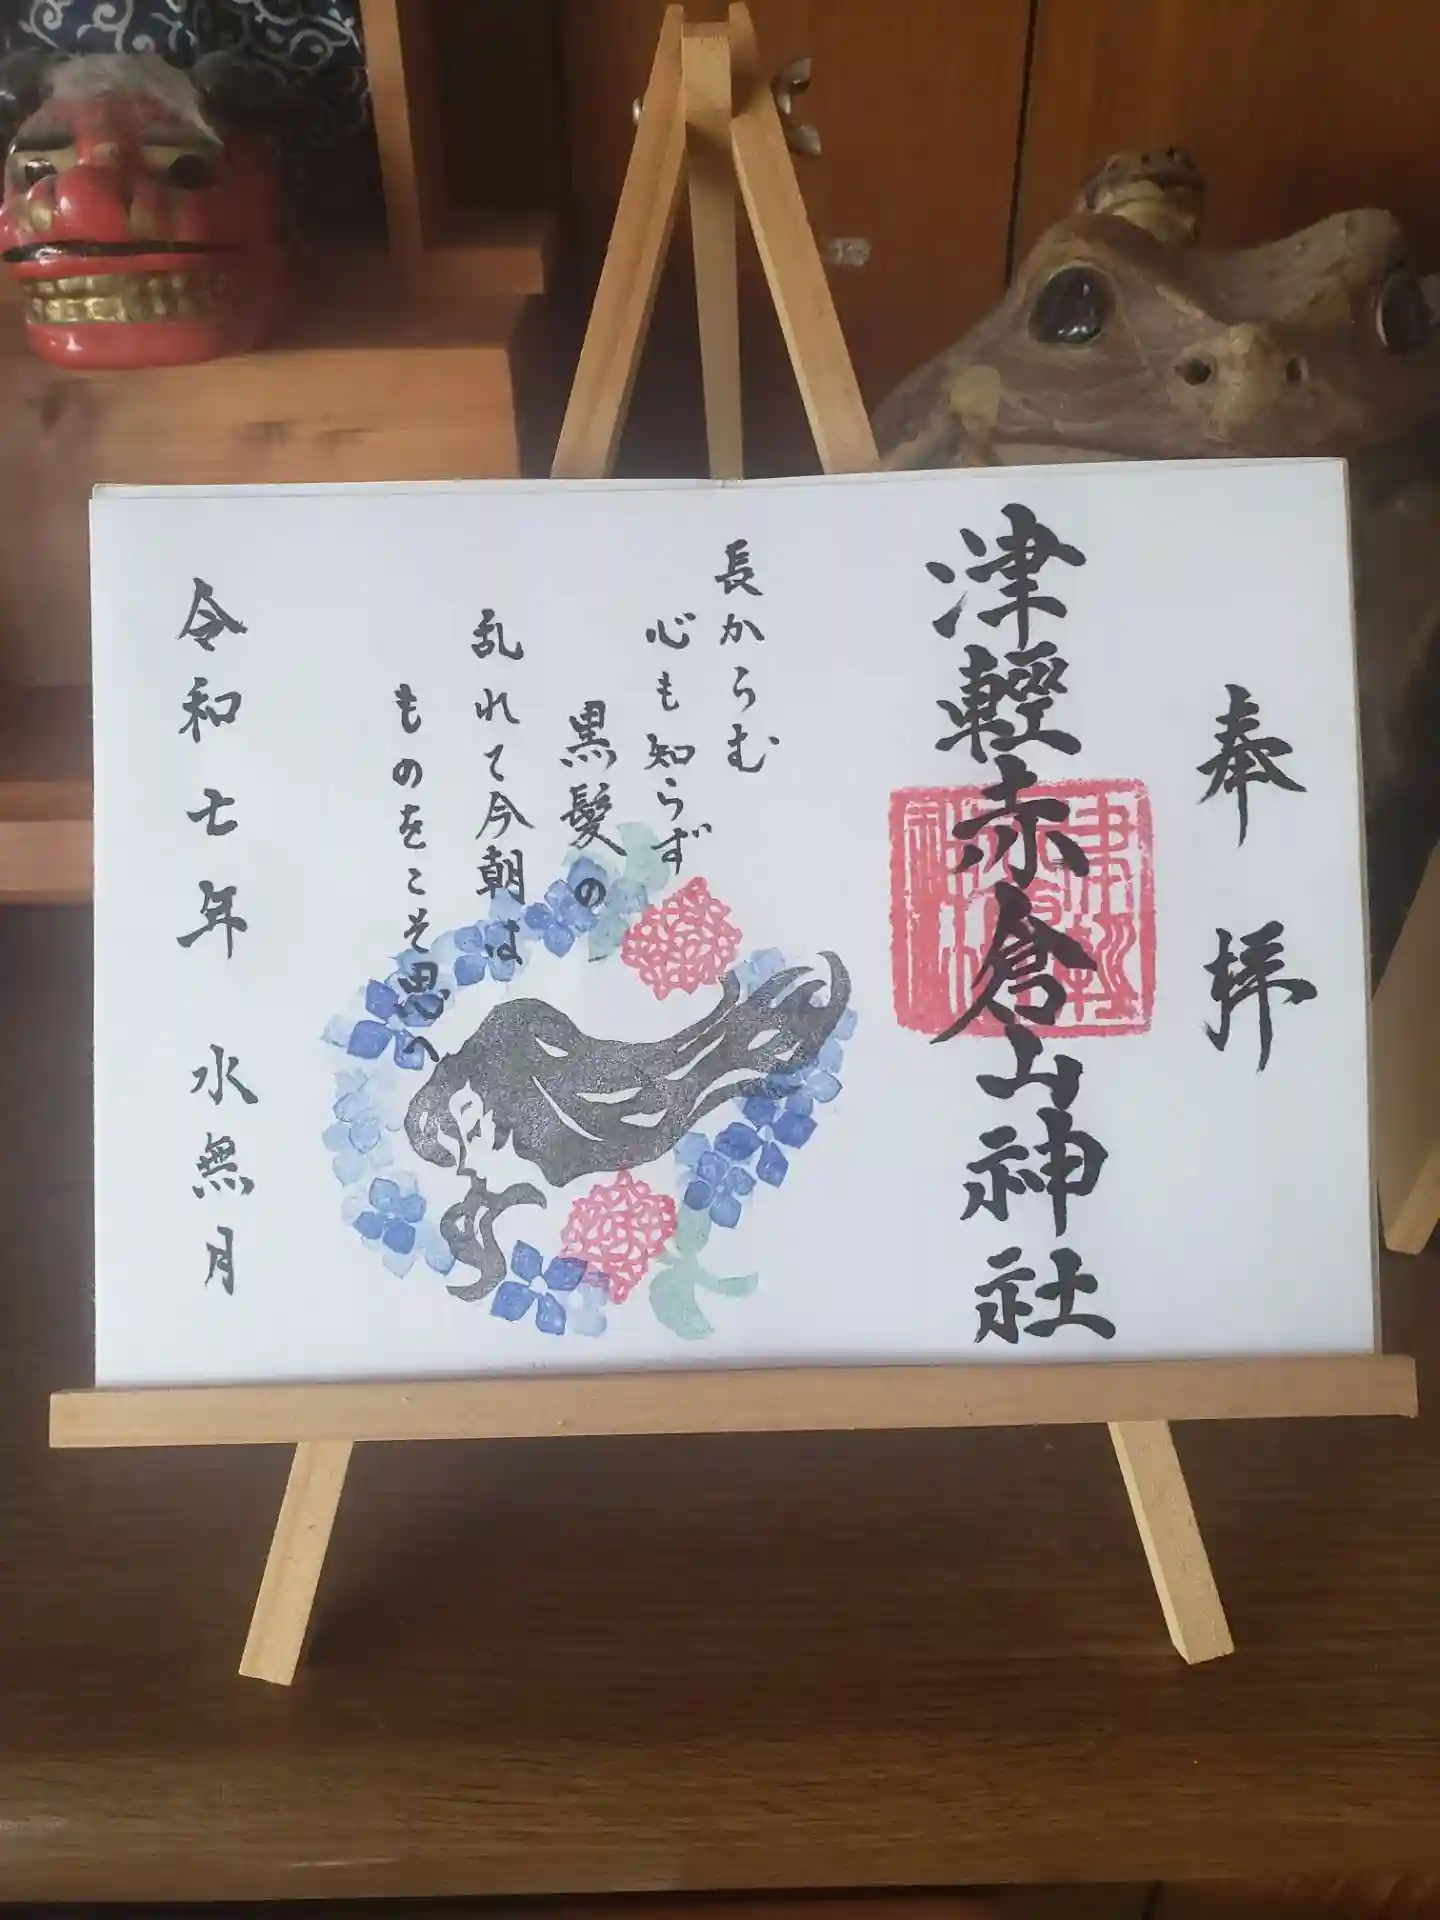 奉拝
津輕赤倉山神社
長からむ
心も知らず
黒髪の
乱れて今朝は
ものをこそ思へ
令和七年 水無月